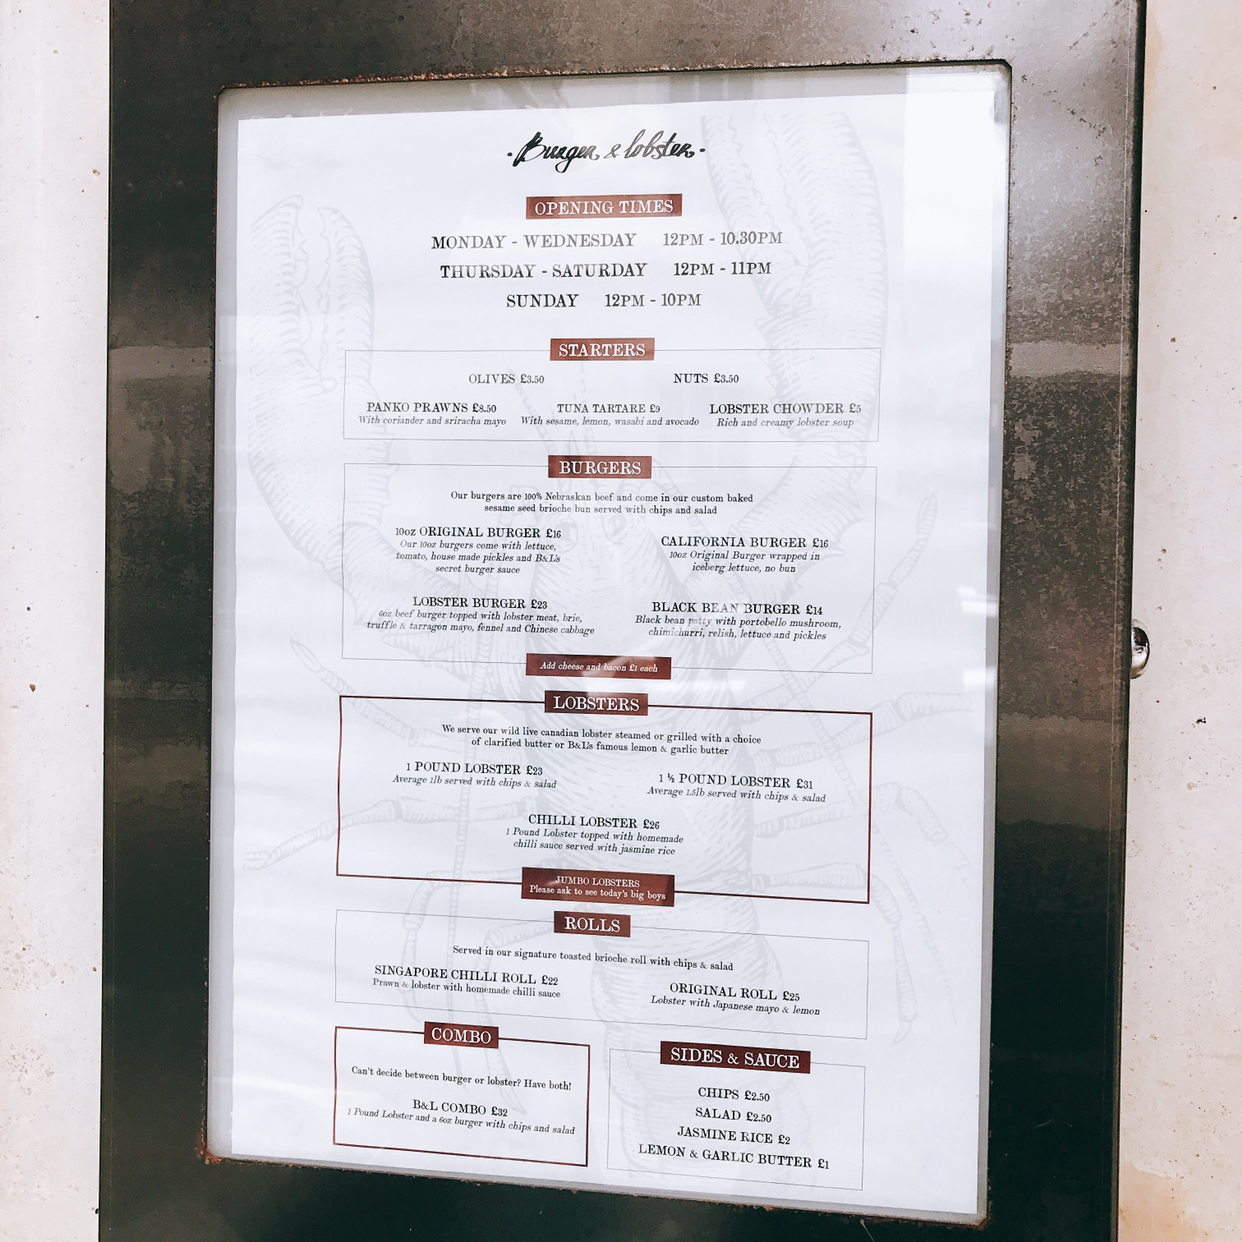 ·Burger & lobster·
OPENING TIMES
MONDAY - WEDNESDAY 12PM - 10.30PM
THURSDAY - SATURDAY 12PM - 11PM
SUNDAY 12PM - 10PM
STARTERS
OLIVES £3.50 NUTS £3.50
PANKO PRAWNS £8.50 TUNA TARTARE £9 LOBSTER CHOWDER £5
With coriander and sriracha mayo With sesame, lemon, wasabi and avocado Rich and creamy lobster soup
BURGERS
Our burgers are 100% Nebraskan beef and come in our custom baked
sesame seed brioche bun served with chips and salad
10oz ORIGINAL BURGER £16
Our 10oz burgers come with lettuce,
tomato, house made pickles and B&L's
secret burger sauce
CALIFORNIA BURGER £16
10oz Original Burger wrapped in
iceberg lettuce, no bun
LOBSTER BURGER £23
6oz beef burger topped with lobster meat, brie,
truffle & tarragon mayo, fennel and Chinese cabbage
BLACK BEAN BURGER £14
Black bean patty with portobello mushroom,
chimichurri, relish, lettuce and pickles
Add cheese and bacon £1 each
LOBSTERS
We serve our wild live canadian lobster steamed or grilled with a choice
of clarified butter or B&L's famous lemon & garlic butter
1 POUND LOBSTER £23
Average 1lb served with chips & salad
1 ½ POUND LOBSTER £31
Average 1.5lb served with chips & salad
CHILLI LOBSTER £26
1 Pound Lobster topped with homemade
chilli sauce served with jasmine rice
JUMBO LOBSTERS
Please ask to see today's big boys
ROLLS
Served in our signature toasted brioche roll with chips & salad
SINGAPORE CHILLI ROLL £22
Prawn & lobster with homemade chilli sauce
ORIGINAL ROLL £25
Lobster with Japanese mayo & lemon
COMBO
Can't decide between burger or lobster? Have both!
B&L COMBO £32
1 Pound Lobster and a 6oz burger with chips and salad
SIDES & SAUCE
CHIPS £2.50
SALAD £2.50
JASMINE RICE £2
LEMON & GARLIC BUTTER £1